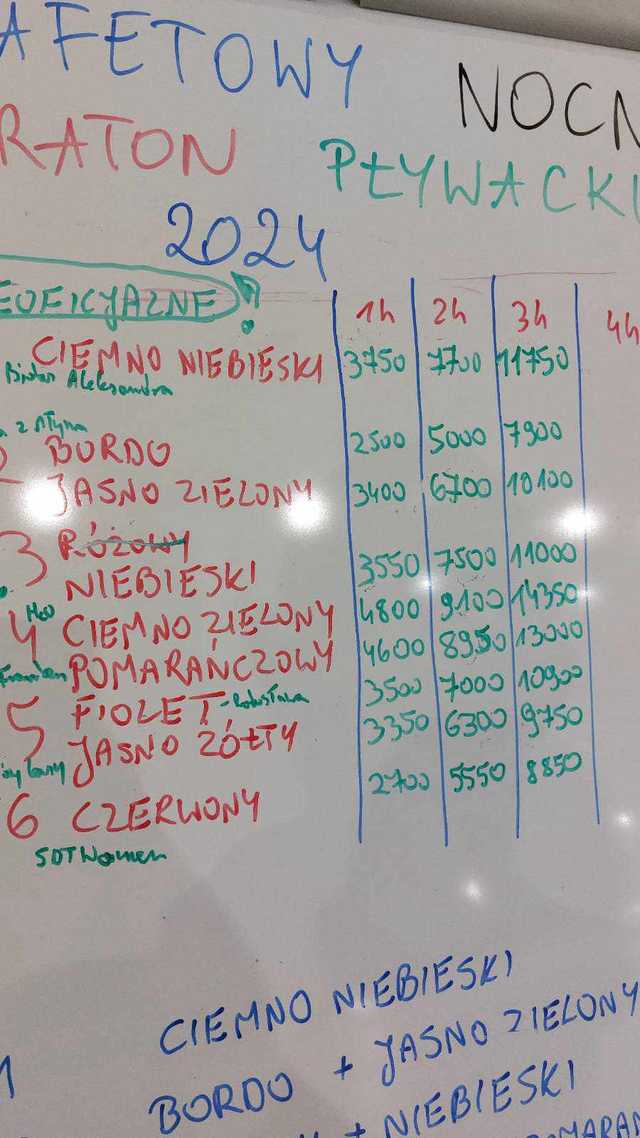 AFETOWY NOCN
RATON PŁYWACKI
2024
EOFICJALNE! 1h 2h 3h 4h
CIEMNO NIEBIESKI 3750 7700 11750
Aleksandra
a z Młyna
2 BORDO 2500 5000 7900
JASNO ZIELONY 3400 6700 10100
3 RÓŻOWY
NIEBIESKI 3550 7500 11000
4 H2O CIEMNO ZIELONY 4800 9100 14350
POMARAŃCZOWY 4600 8950 13000
5 FIOLET 3500 7000 10900
JASNO ŻÓŁTY 3350 6300 9750
6 CZERWONY 2700 5550 8850
SDT Women
1 CIEMNO NIEBIESKI
BORDO + JASNO ZIELONY
+ NIEBIESKI
POMARAN